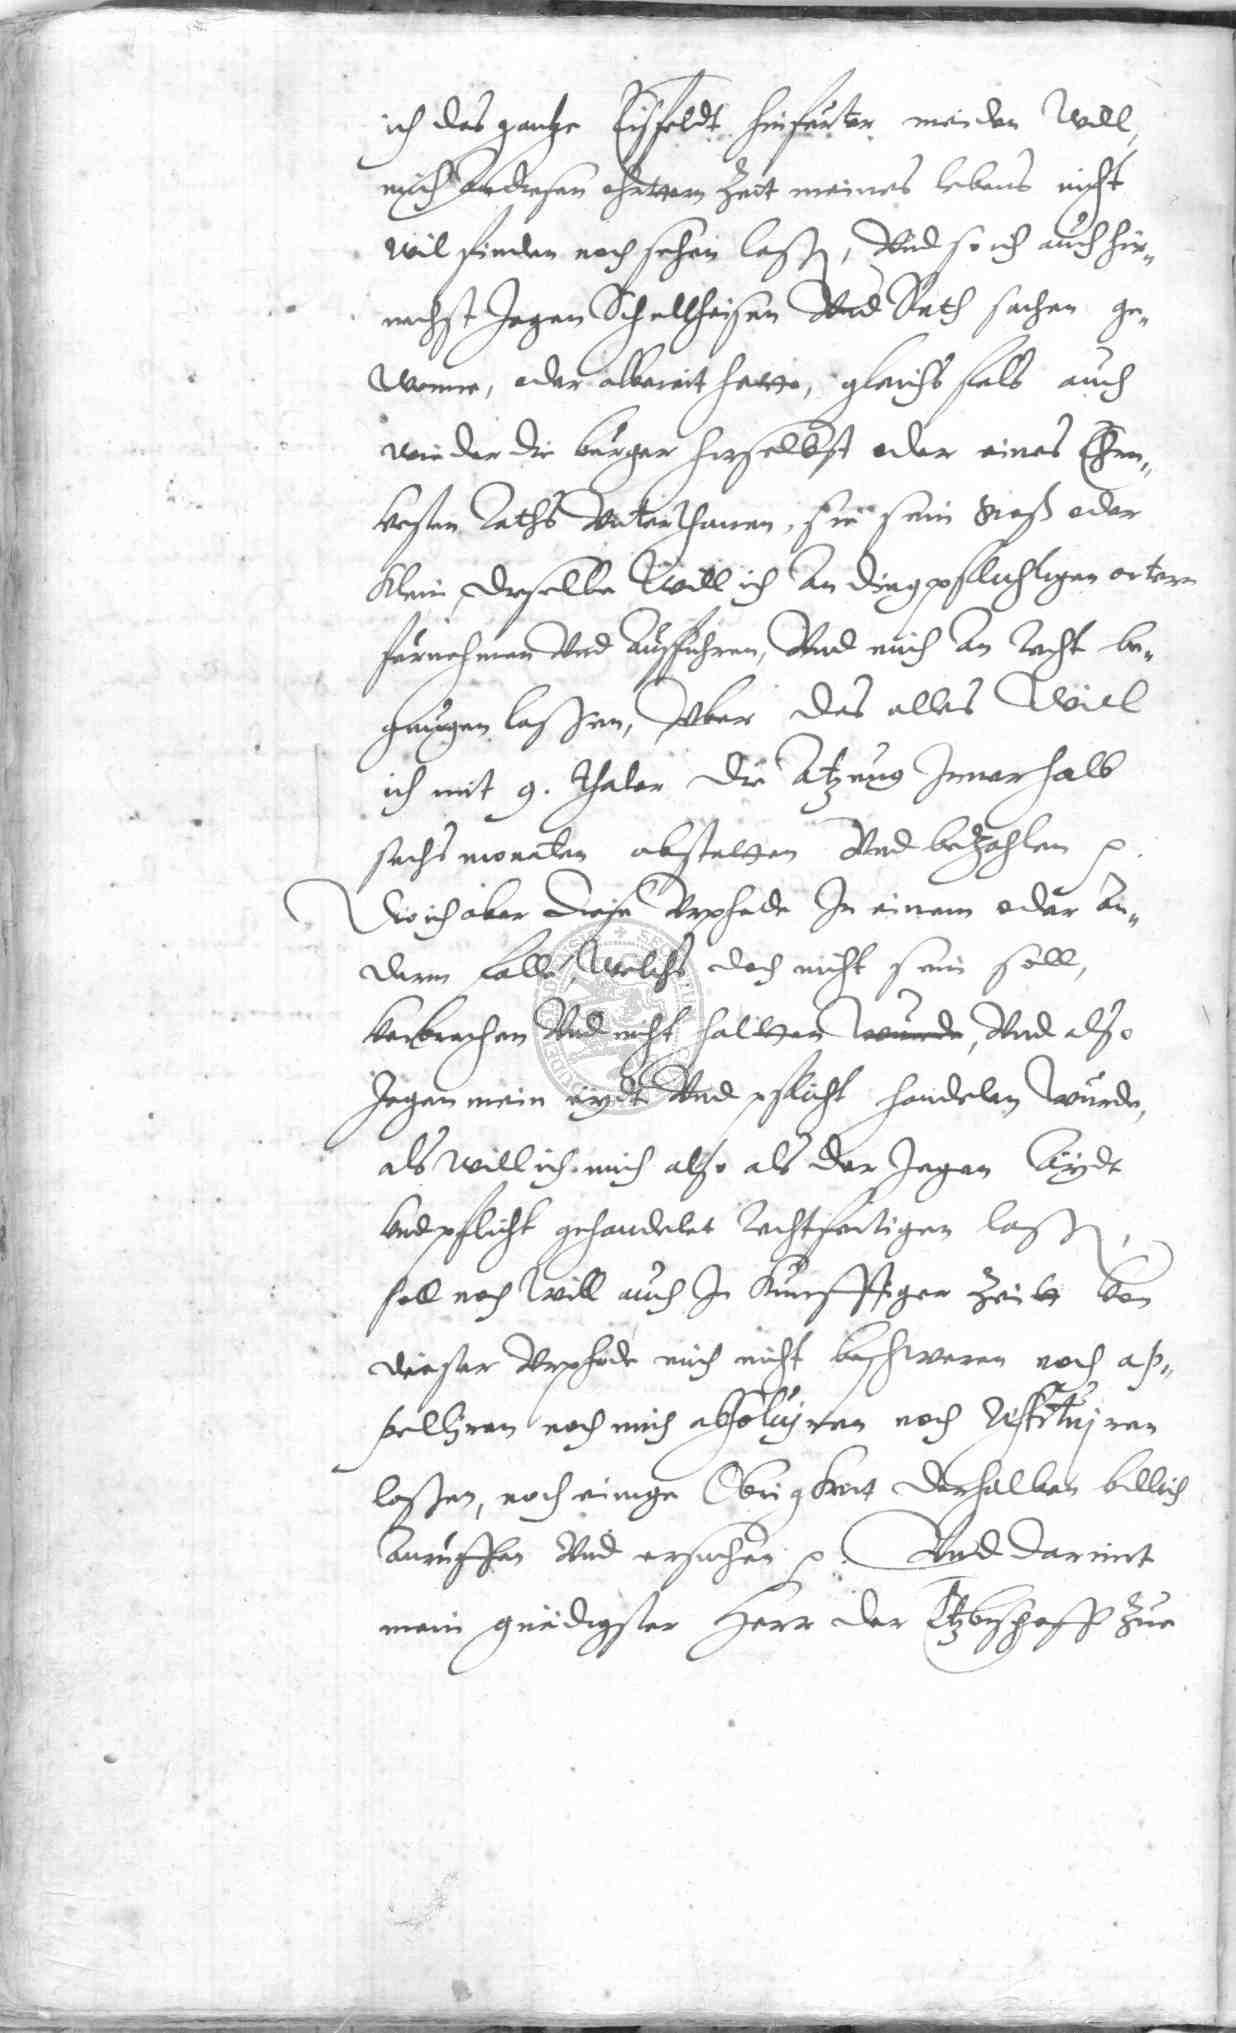 ich das gantze Eißfeldt hinfurter meiden Will,
mich An diesen ohrttern Zeit meines lebens nicht
wil finden noch sehen laßen, Vnd so ich auch hir„
nechst Jegen Schultheisen Vnd Rath sachen ge„
Wonne, oder albereit hette, gleichs fals auch
wieder die burger hirselbst oder eines Ehrn„
Vesten Raths Vnterthanen, sie sein Groß oder
Klein, dieselbe Will ich An dingpflichtigen ortern
furnehmen Vnd Außfuhren, Vnd mich An recht be„
gnugen lassen, Vber das alles Will
ich mit 9. thaler die Atzung Innerhalb
sechs monaten abstatten Vnd bezahlen p.
Do ich aber diese Vrphede In einem oder An„
dern falle, Welchs doch nicht sein soll,
Verbrechen Vnd nicht haltten wurde, Vnd also
Jegen mein eydt Vnd pflicht handelen Wurde,
als will ich mich also als der Jegen Eydt
Vnd pflicht gehandelet rechtfertigen laßen,
soll noch Will auch In Kunfftiger Zeitt Von
dießer Vrphede mich nicht beschweren noch ap„
pelliren noch mich absoluiren noch restituiren
laßen, noch einige Obrigkeit derhalben billich
Anruffen Vnd ersuchen p. Vnd darmit
mein gnedigster Herr der Ertzbischoff Zue